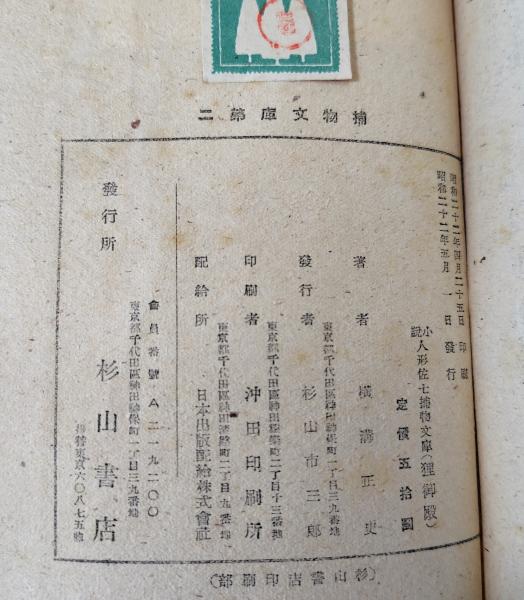 捕物文庫第二
昭和二十二年四月二十五日 印刷
昭和二十二年五月 一 日 發行
小説人形佐七捕物文庫(狸御殿)
定價五拾圓
著者 橫溝正史
東京都千代田區神田神保町一丁目三九番地
發行者 杉山市三郎
東京都千代田區神田猿樂町二丁目十三番地
印刷者 沖田印刷所
東京都千代田區神田淡路町二丁目九番地
配給所 日本出版配給株式會社
會員番號 A二一九二〇〇
東京都千代田區神田神保町一丁目三九番地
發行所 杉山書店
振替東京六〇八七五番
(杉山書店印刷部)